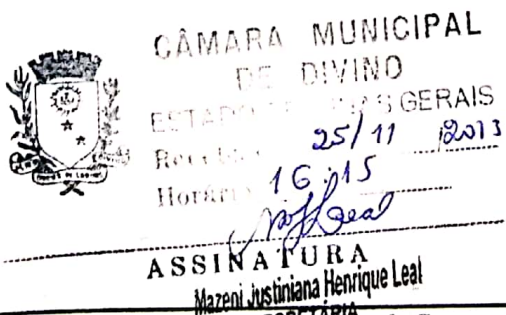 CÂMARA MUNICIPAL
DE DIVINO
ESTADO DE MINAS GERAIS
25/11/2013
Horário 16:15
ASSINATURA
Mazeni Justiniana Henrique Leal
SECRETÁRIA